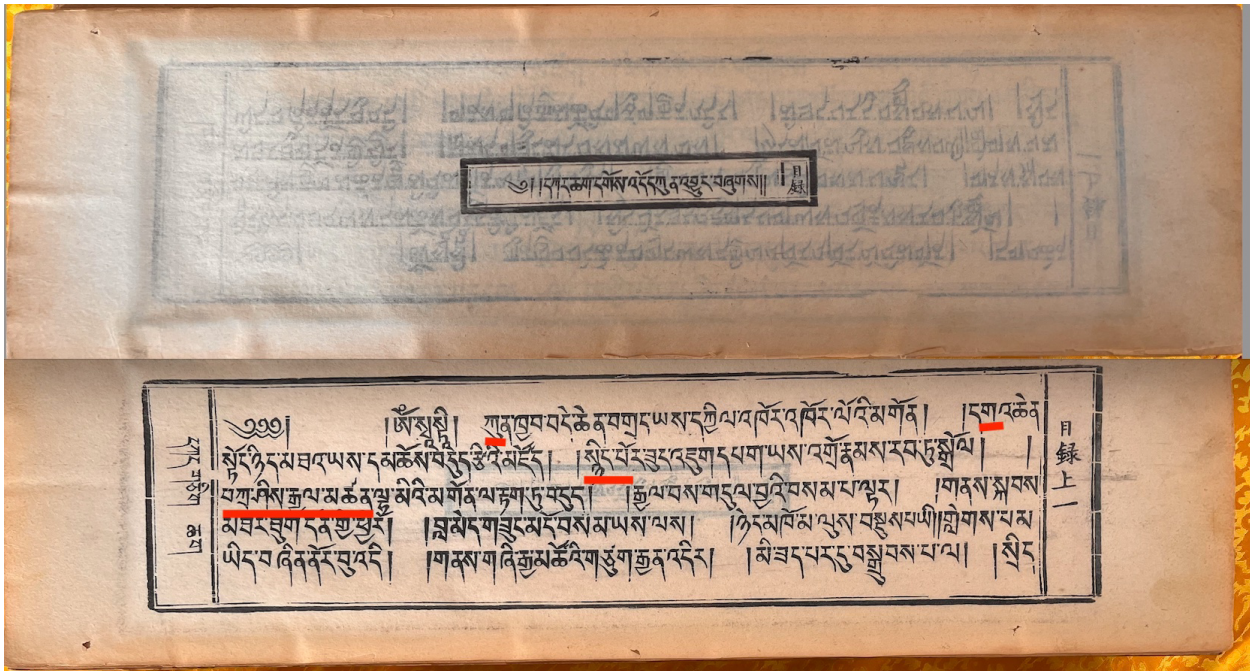 ༄༅། །དཀར་ཆག་དགོས་འདོད་ཀུན་འབྱུང་བཞུགས།།
目録
༄༅༅། །ཨོཾ་སྭསྟི། ཀུན་ཁྱབ་བདེ་ཆེན་བགྲང་ཡས་དཀྱིལ་འཁོར་འཁོར་ལོའི་མགོན། །དགའ་ཆེན་
སྟོང་ཉིད་མཐའ་ཡས་དམ་ཆོས་བདུད་རྩིའི་མངོད། །སྙིང་པོར་ཟུང་འཇུག་དཔག་ཡས་འགྲོ་རྣམས་རབ་ཏུ་སྒྲོལ། །
བཀྲ་ཤིས་རྒྱལ་མཚན་ལྷ་མིའི་མགོན་ལ་རྟག་ཏུ་བདུད། །རྒྱལ་བས་གདུལ་བྱའི་བསམ་པ་ལྟར། །གནས་སྐབས་
མཐར་ཐུག་དོན་གྱི་ཕྱིར། །བླ་མེད་གཟུང་མང་བསམ་ཡས་ལས། །ཉེད་མཁོ་མ་ལུས་བསྡུས་པའི། །གླེགས་པ་མ་
ཡིད་བཞིན་ནོར་བུ་འདི། །གནས་གཞི་རྒྱ་མཚོའི་གཙུག་རྒྱན་འདིར། །མི་ཟད་པར་དུ་བསྒྲུབས་པ་ལ། །སྲིད་
དཀར་
ཆག
目録上一